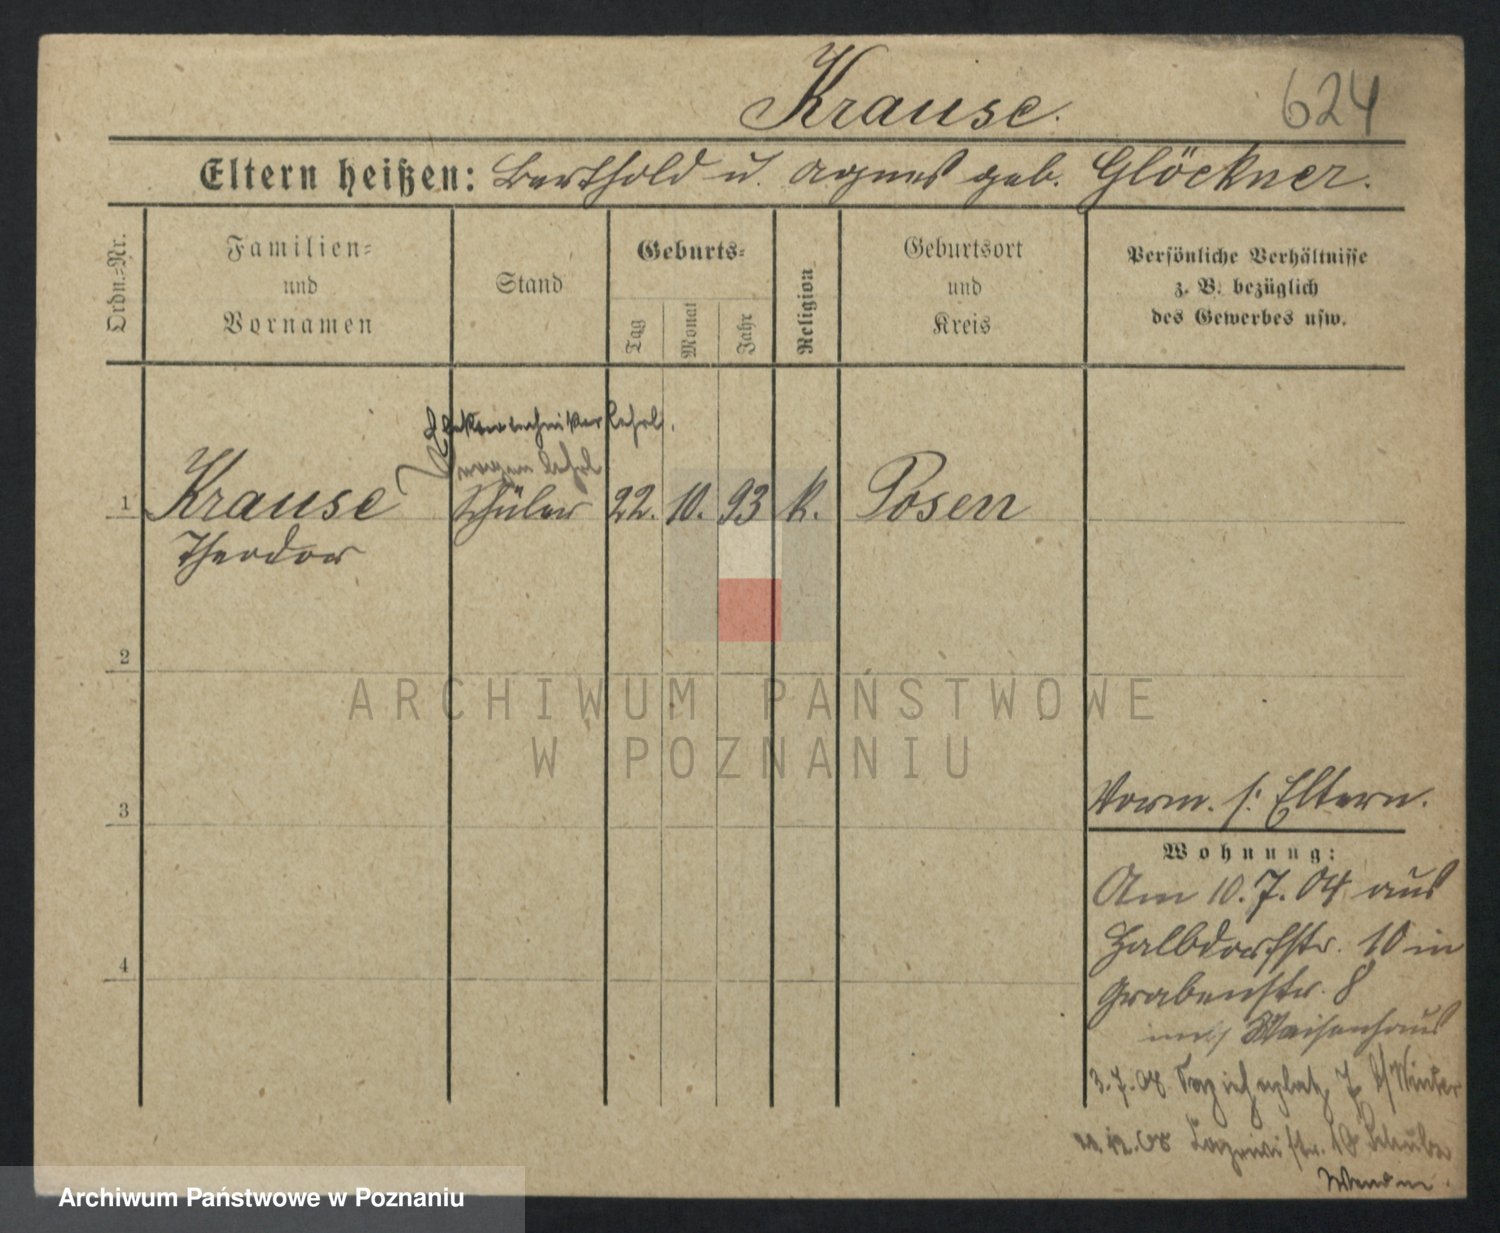 Krause.
624
Eltern heißen: Berthold u. Agnes geb. Glöckner.
Ordn.=Nr.
Familien=
und
Vornamen
Stand
Geburts=
Tag
Monat
Jahr
Religion
Geburtsort
und
Kreis
Persönliche Verhältnisse
z. B. bezüglich
des Gewerbes usw.
Elektrotechniker Lehrl.
Lehrl
1 Krause Schüler 22. 10. 93 k. Posen
Theodor
2
ARCHIWUM PAŃSTWOWE
W POZNANIU
3
Vorm. s. Eltern.
Wohnung:
Am 10. 7. 04 aus
Halbdorfstr. 10 in
4
Grabenstr. 8
ins Waisenhaus
3. 7. 08 7 b/Winter
12. 08
Archiwum Państwowe w Poznaniu